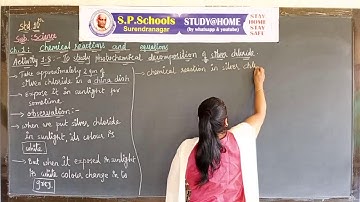 Std 10th
Sub: Science
S.P.Schools
Surendranagar
STUDY@HOME
(by whatsapp & youtube)
STAY
HOME
STAY
SAFE
ch:1: chemical reactions and equations
Activity 1.8:- To study photochemical decomposition of silver chloride
- Take approximately 2 gm of
silver chloride in a china dish
- Expose it in sunlight for
sometime
→ observation:-
- when we put silver chloride
in sunlight, its colour is
white
- But when it exposed in sunlight
its white colour change in to
grey.
- chemical reaction in silver chl